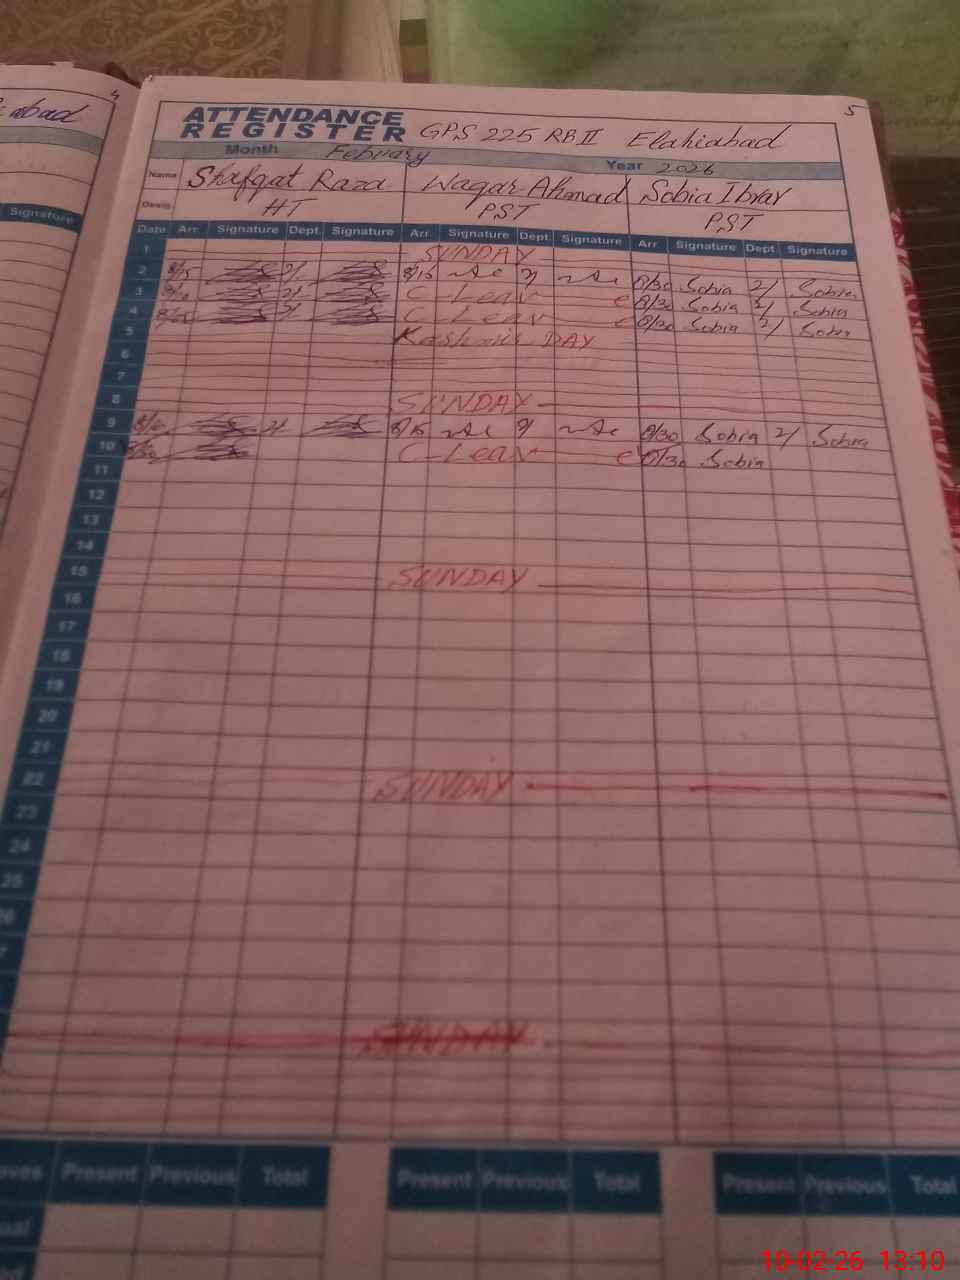 4
5
abad
ATTENDANCE
REGISTER GPS 225 RB II Elahiabad
Month February Year 2026
Name Shafqat Raza Waqar Ahmad Sobia Ibrar
Desig: HT PST PST
Signature
Date Arr. Signature Dept. Signature Arr. Signature Dept. Signature Arr. Signature Dept. Signature
1 SUNDAY
2 8/15 2/ 8/15 2/ 8/30 Sobia 2/ Sobia
3 2/ C-Leave 8/30 Sobia 2/ Sobia
4 2/ C-Leave 8/30 Sobia 2/ Sobia
5 Kashmir DAY
6
7
8 SUNDAY
9 2/ 8/15 2/ 8/30 Sobia 2/ Sobia
10 C-Leave 8/30 Sobia
11
12
13
14
15 SUNDAY
16
17
18
19
20
21
22 SUNDAY
23
24
25
26
SUNDAY
Present Previous Total Present Previous Total Present Previous Total
10-02-26 13:10